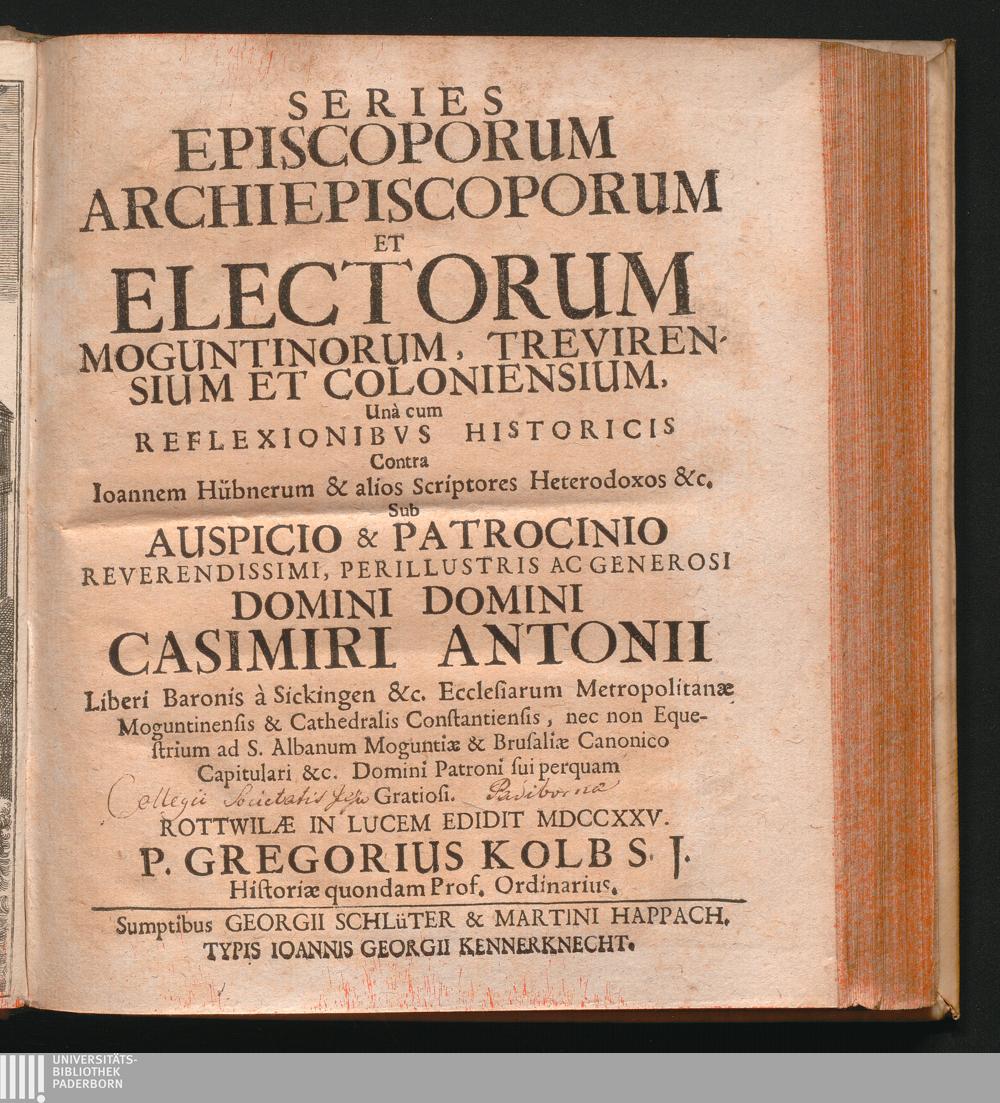 SERIES
EPISCOPORUM
ARCHIEPISCOPORUM
ET
ELECTORUM
MOGUNTINORUM, TREVIREN-
SIUM ET COLONIENSIUM,
Unà cum
REFLEXIONIBVS HISTORICIS
Contra
Ioannem Hübnerum & alios Scriptores Heterodoxos &c.
Sub
AUSPICIO & PATROCINIO
REVERENDISSIMI, PERILLUSTRIS AC GENEROSI
DOMINI DOMINI
CASIMIRI ANTONII
Liberi Baronis à Sickingen &c. Ecclesiarum Metropolitanæ
Moguntinensis & Cathedralis Constantiensis, nec non Eque-
strium ad S. Albanum Moguntiæ & Brusaliæ Canonico
Capitulari &c. Domini Patroni sui perquam
Collegii Societatis Jesu Gratiosi. Padibornæ
ROTTWILÆ IN LUCEM EDIDIT MDCCXXV.
P. GREGORIUS KOLB S. J.
Historiæ quondam Prof. Ordinarius.
Sumptibus GEORGII SCHLüTER & MARTINI HAPPACH.
TYPIS IOANNIS GEORGII KENNERKNECHT.
UNIVERSITÄTS-
BIBLIOTHEK
PADERBORN